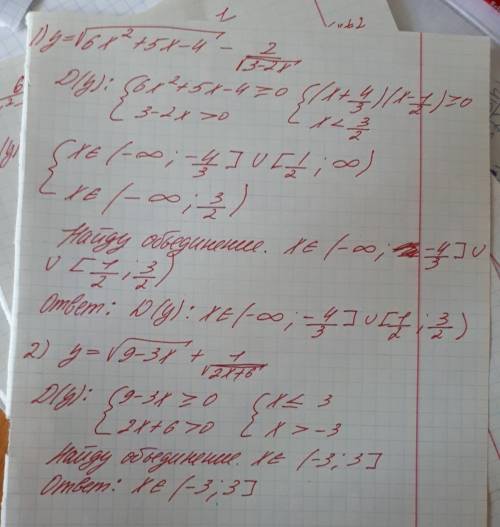 1
1) y = √(6x² + 5x - 4) - 2/√(3-2x)
D(y): { 6x² + 5x - 4 ≥ 0 { (x + 4/3)(x - 1/2) ≥ 0
3 - 2x > 0 x < 3/2
{ x ∈ (-∞; -4/3] ∪ [1/2; ∞)
x ∈ (-∞; 3/2)
Найду объединение. x ∈ (-∞; -4/3] ∪
∪ [1/2; 3/2)
Ответ: D(y): x ∈ (-∞; -4/3] ∪ [1/2; 3/2)
2) y = √(9-3x) + 1/√(2x+6)
D(y): { 9 - 3x ≥ 0 { x ≤ 3
2x + 6 > 0 x > -3
Найду объединение. x ∈ (-3; 3]
Ответ: x ∈ (-3; 3]